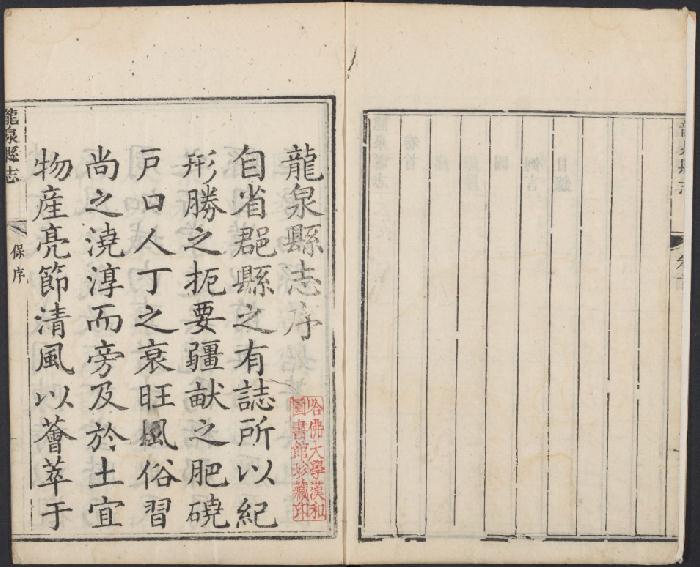 龍泉縣志序
自省郡縣之有誌所以紀
形勝之扼要疆畎之肥磽
戸口人丁之衰旺風俗習
尚之澆淳而旁及於土宜
物産亮節清風以薈萃于
哈佛大學漢和
圖書館珍藏印
龍泉縣志
保序